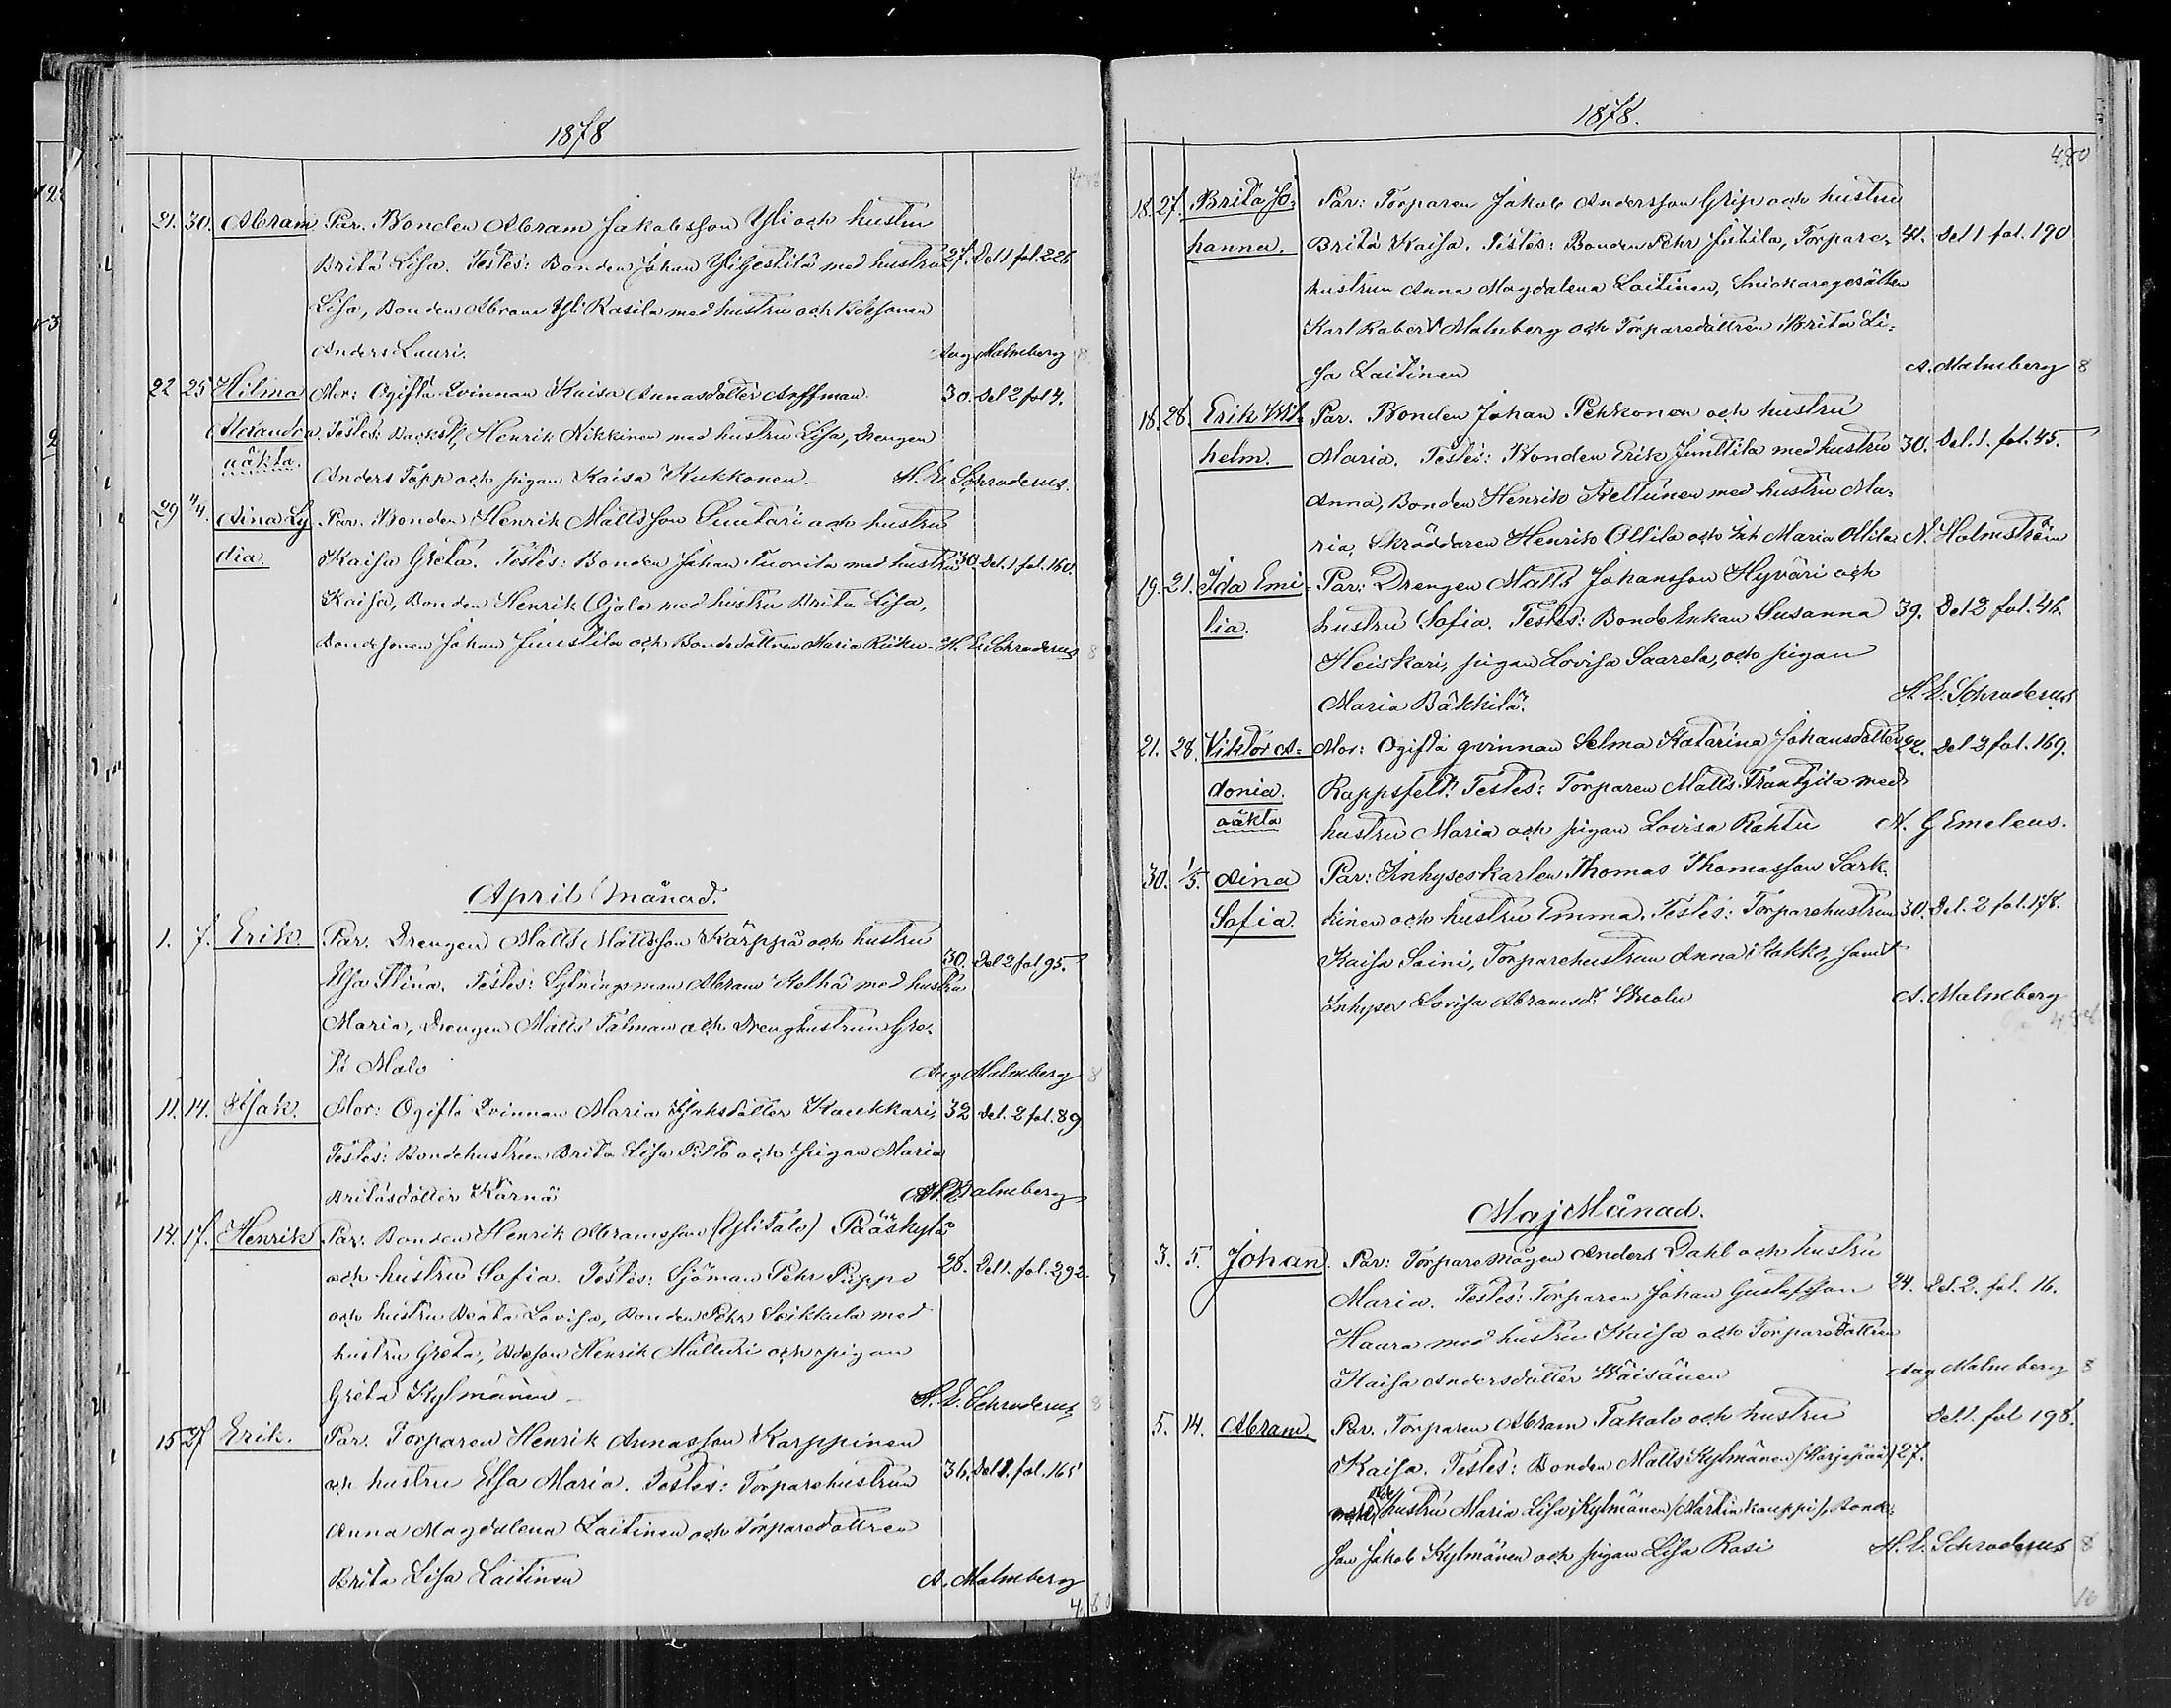 1878
21. 30. Abram Par. Bonden Abram Jakobsson Yli och hustru
Brita Lisa. Testes: Bonden Johan Yli Jestilä med hustru 27. Del 1 fol. 226
Lisa, Bonden Abram Yli Rasila med hustru och Bdesonen
Anders Lauri. Aug Malmberg
22 25 Hilma Mor: Ogifta Qvinnan Kaisa Annasdotter Anffman. 30. Del 2 fol 4.
Alexandra Testes: Henrik Nikkinen med hustru Lisa, Drengen
oäkta. Anders Topp och pigan Kaisa Kukkonen H. E. Schroderus.
29 1/4. Aina Ly Par. Bonden Henrik Mattsson Suutari och hustru
dia. Kaisa Greta. Testes: Bonden Johan Tuorila med hustru 30. Del. 1 fol. 160.
Kaisa, Bonden Henrik Ojala med hustru Brita Lisa,
Bondesonen Johan Junttila och Bondedottren Maria H. E. Schroderus 8
April månad.
1. 7. Erik. Par. Drengen Matts Mattsson Kärppä och hustru
Elsa Stina. Testes: Sytningsman Abram med hustru 30. Del 2 fol 95.
Maria, Drengen Matts Talman och Drenghustrun Gre-
ta Malo Aug Malmberg 8
11. 14. Isak. Mor: Ogifta Qvinnan Maria Isaksdotter Kaukkari, 32 Del. 2 fol. 89
Testes: Bondehustrun Brita Lisa och pigan Maria
Britasdotter Kärnä A. Malmberg
14. 17. Henrik Par: Bonden Henrik Abramsson (Ylitalo) Pääskylä
och hustru Sofia. Testes: Sjöman Pehr Piippo 28. Del 1. fol. 292.
och hustru Beata Lovisa, Bonden Pehr Seikkula med
hustru Greta, Bdeson Henrik och pigan
Greta Kylmänen H. E. Schroderus 8
15 27 Erik. Par. Torparen Henrik Annasson Karppinen
och hustru Elsa Maria. Testes: Torparehustrun 36. Del 1. fol. 165
Anna Magdalena Laitinen och Torparedottren
Brita Lisa Laitinen A. Malmberg
1878.
480
18. 27. Brita Jo- Par: Torparen Jakob Andersson Grip och hustru
hanna. Brita Kaisa. Testes: Bonden Pehr Jutila, Torpare- 41. Del 1 fol. 190
hustrun Anna Magdalena Laitinen, Snickaregesällen
Karl Robert Malmberg och Torparedottren Brita Li-
sa Laitinen A. Malmberg 8
18. 28. Erik Wil- Par. Bonden Johan Pehkonen och hustru
helm. Maria. Testes: Bonden Erik Junttila med hustru 30. Del. 1. fol. 45.
Anna, Bonden Henrik Kettunen med hustru Ma-
ria, Skräddaren Henrik Ollila och Maria Ollila N. Holmström
19. 21. Ida Emi- Par: Drengen Matts Johansson Hyväri och
lia. hustru Sofia. Testes: Bonde Enkan Susanna 39. Del 2 fol. 46.
Heiskari, pigan Lovisa Saarela, och pigan
Maria Bäkkilä. H. E. Schroderus
21. 28. Viktor A- Mor: Ogifta qvinnan Selma Katarina Johansdotter 22. Del 2 fol. 169.
donia. Rappsfelt. Testes: Torparen Matts med
oäkta hustru Maria och pigan Lovisa Rahtu A. G Emeleus.
30. 1/5. Aina Par: Inhyseskarlen Thomas Thomasson Sark-
Sofia. kinen och hustru Emma. Testes: Torparehustrun 30. Del. 2 fol. 178.
Kaisa Saini, Torparehustrun Anna Kakko, samt
Inhyses Lovisa Abramsd:r A. Malmberg
Maj Månad.
3. 5. Johan. Par: Torparemågen Anders Dahl och hustru
Maria. Testes: Torparen Johan Gustafsson 24. Del. 2. fol. 16.
Haara med hustru Kaisa och Torparedottren
Kaisa Andersdotter Wäisänen Aug Malmberg 8
5. 14. Abram. Par. Torparen Abram Takalo och hustru Del 1. fol 198.
Kaisa. Testes: Bonden Matts Kylmänen 27.
hustru Maria Lisa Kylmänen (Martinkauppi), Bonde-
son Jakob Kylmänen och pigan Lisa Rasi H. E. Schroderus 8
16